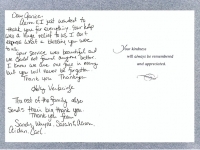 Dear Janice,
Adam & I just wanted to
thank you for everything. Your help
was a huge relief to us. I can't
express what a blessing you were
to us.
Your service was beautiful and
we could not found anyone better.
I know we are our foes in many
but you will never be forgotten
Thank you Thank you
Holly Verbridge
The rest of the family also
sends their big thank you
Thank you from
Sandy, Wayne, Sarah & Aaron,
Aidan Carl
Your kindness
will always be remembered
and appreciated.